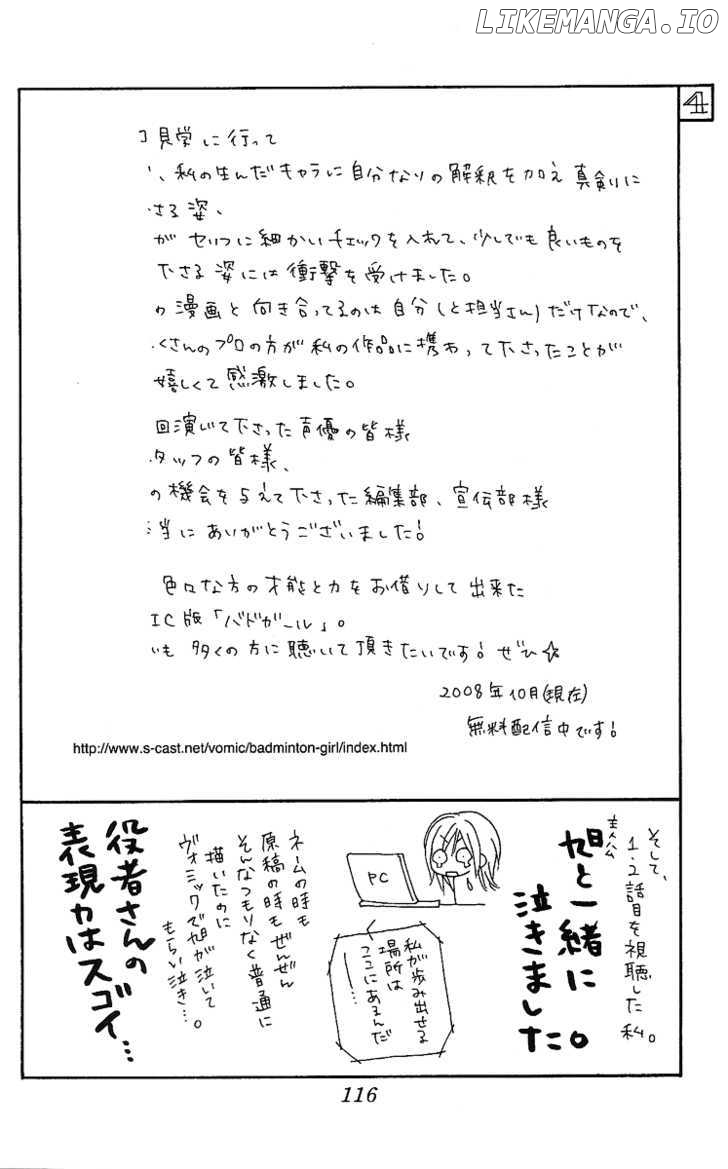 LIKEMANGA.IO
4
見学に行って
、私の生んだキャラに自分なりの解釈を加え真剣に
さる姿、
がセリフに細かいチェックを入れて、少しでも良いものを
下さる姿には衝撃を受けました。
の漫画と向き合ってるのは自分(と担当さん)だけなので、
くさんのプロの方が私の作品に携わって下さったことが
嬉しくて感激しました。
回演じて下さった声優の皆様
タッフの皆様、
の機会を与えて下さった編集部、宣伝部様
当にありがとうございました!
色々な方の才能と力をお借りして出来た
IC版「バドガール」。
も多くの方に聴いて頂きたいです!ぜひ☆
2008年10月(現在)
無料配信中です!
http://www.s-cast.net/vomic/badminton-girl/index.html
そして、
1・2話目を視聴した私。
主人公
旭と一緒に
泣きました。
PC
私が歩み出せる
場所は
ここにあるんだ
ーー…
ネームの時も
原稿の時もぜんぜん
そんなつもりなく普通に
描いたのに
ヴォミックで旭が泣いて
もらい泣き…。
役者さんの
表現力はスゴイ…
116